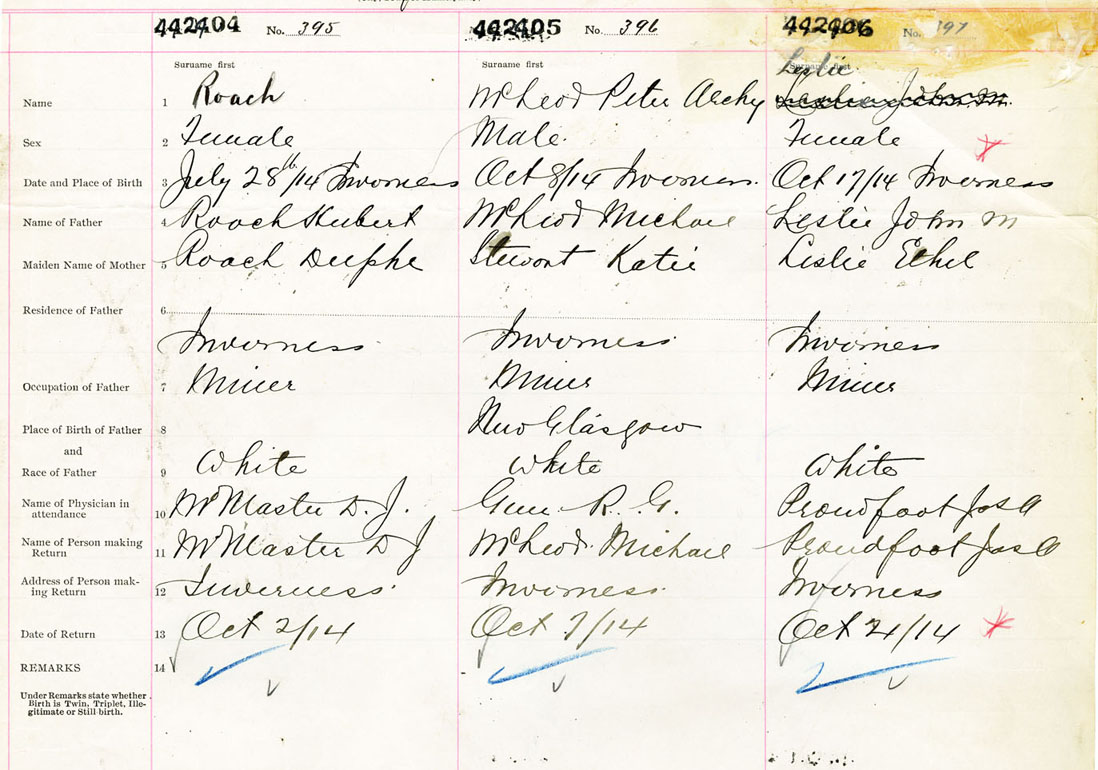 442404 No. 395 442405 No. 396 442406 No. 397
Surname first Surname first Surname first
Leslie
Name 1 Roach McLeod Peter Archy Leslie John M.
Sex 2 Female Male Female
Date and Place of Birth 3 July 28th/14 Inverness Oct 8/14 Inverness Oct 17/14 Inverness
Name of Father 4 Roach Hubert McLeod Michael Leslie John M
Maiden Name of Mother 5 Roach Stewart Katie Leslie Ethel
Residence of Father 6
Inverness Inverness Inverness
Occupation of Father 7 Miner Miner Miner
Place of Birth of Father 8 New Glasgow
and
Race of Father 9 White White White
Name of Physician in
attendance 10 McMaster D. J. Gunn R. G. Proudfoot Jas A
Name of Person making
Return 11 McMaster D J McLeod Michael Proudfoot Jas A
Address of Person mak-
ing Return 12 Inverness Inverness Inverness
Date of Return 13 Oct 2/14 Oct 7/14 Oct 21/14
REMARKS 14
Under Remarks state whether
Birth is Twin, Triplet, Ille-
gitimate or Still birth.